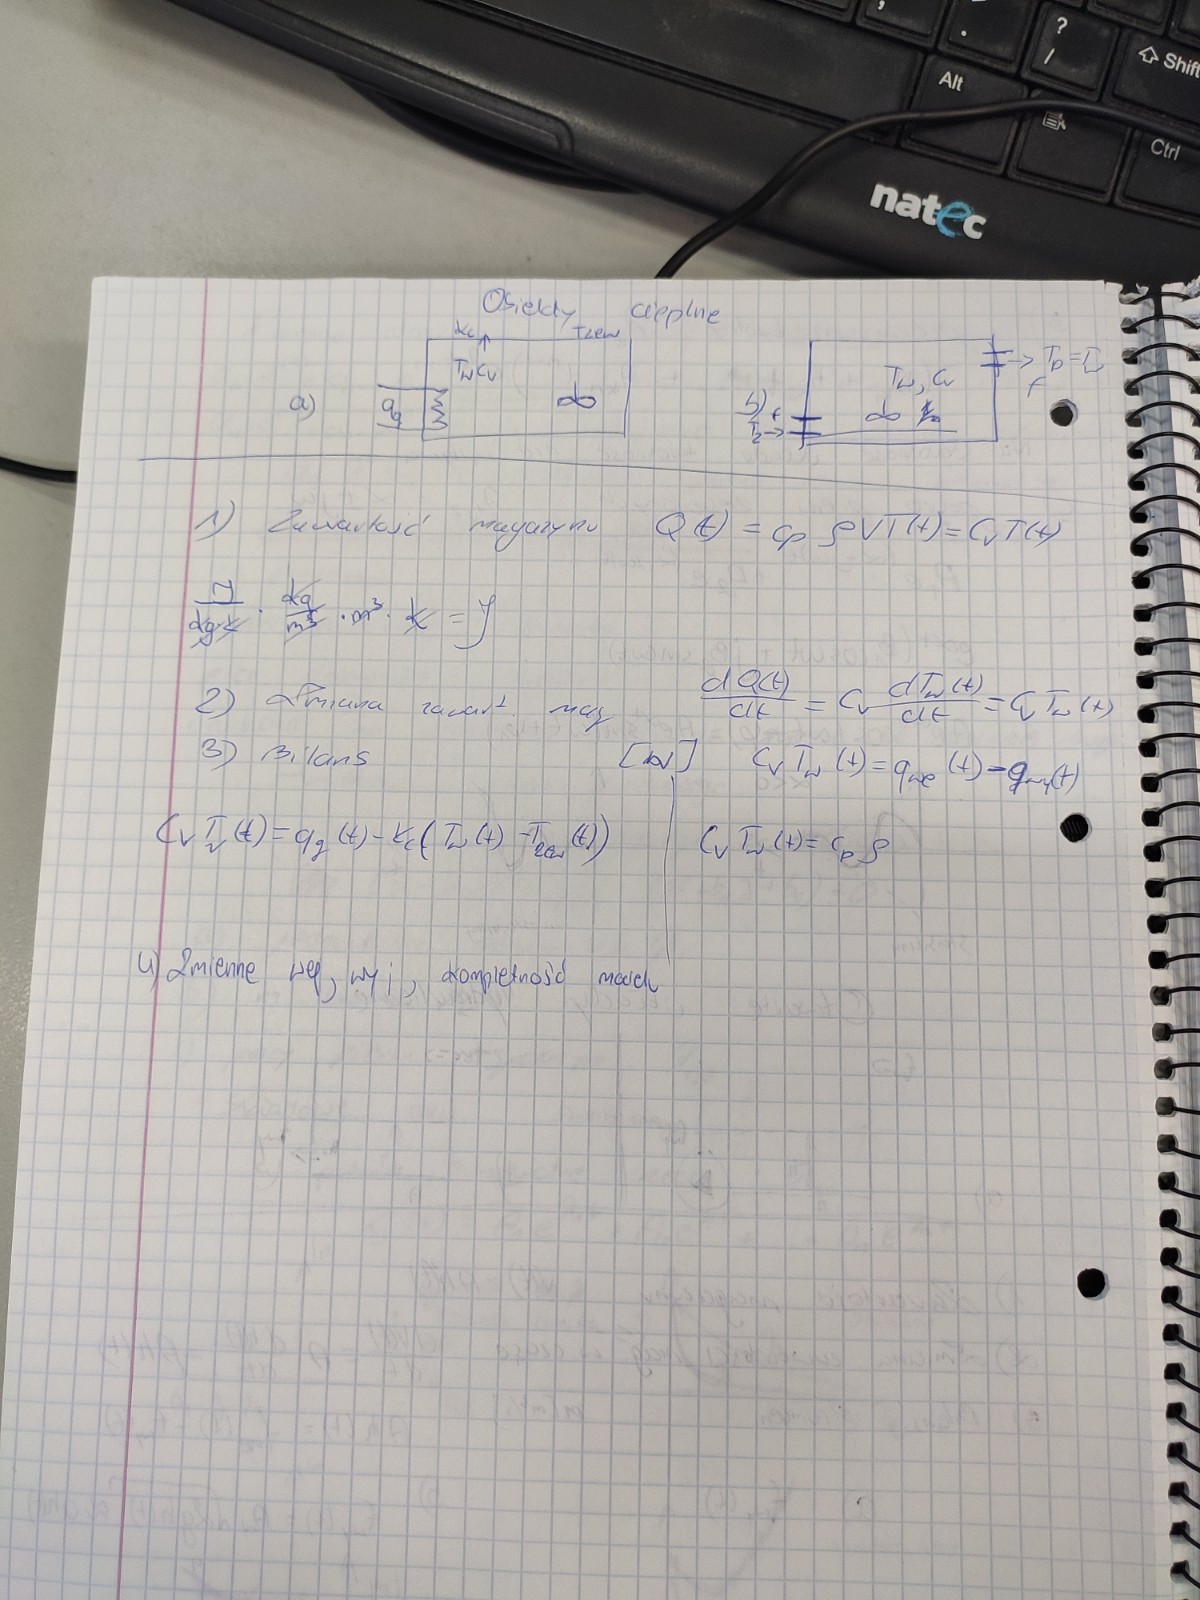 ?
/
Shift
Alt
Ctrl
natec
Obiekty cieplne
Kc Tzew
Tw Cv
a) qg
b) f
Tz →
Tw, Cv
→ Tp = Tw
f
1) Zawartość magazynu Q(t) = cp ρVT(t) = CvT(t)
J/kg·K · kg/m³ · m³ · K = J
2) Zmiana zawart. mag dQ(t)/dt = Cv dTw(t)/dt = Cv Tw(t)
3) Bilans [W] Cv Tw(t) = qwe(t) - qwy(t)
Cv Tw(t) = qg(t) - Kc(Tw(t) - Tzew(t)) Cv Tw(t) = cp ρ
4) Zmienne wej, wyj, kompletność modelu